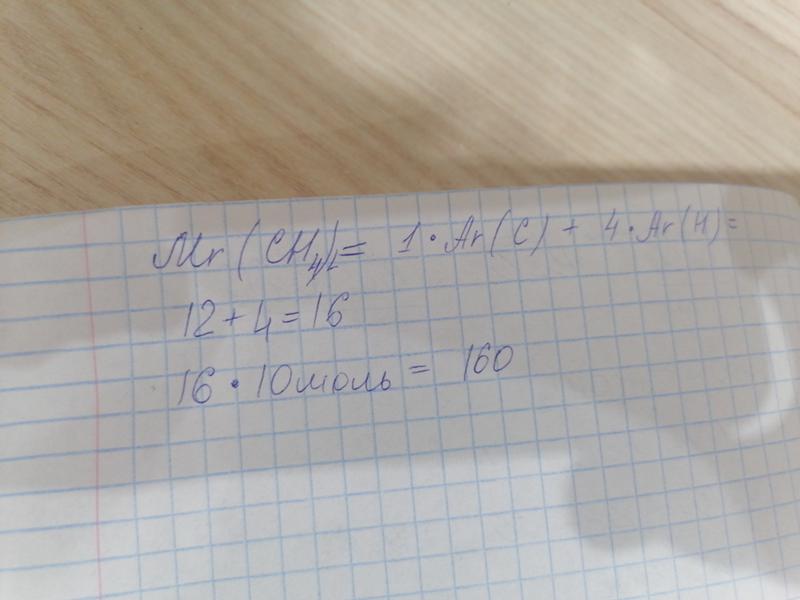 Mr (CH₄) = 1 · Ar (C) + 4 · Ar (H) =
12 + 4 = 16
16 · 10 моль = 160